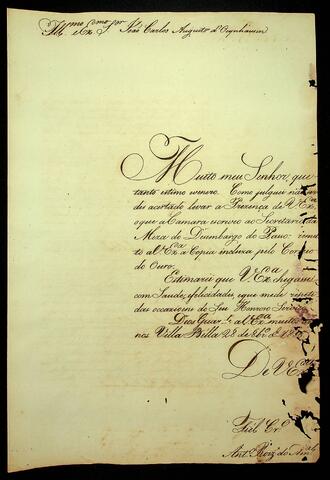 Ill.mo e Ex.mo Snr João Carlos Augusto d'Oeynhausen
Muito meu Senhor, que
tanto estimo venero. Como julguei não an
dei acertado levar a Prezença de V. Ex.a
o que a Camara escreveo ao Secretario da
Meza do Dezembargo do Paço: remeto
to a V. Ex.a a Copia incluza pelo Correio
do Ouro.
Estimarei que V. Ex.a chegasse
com Saude, e felicidades, e que me de repeti
das occazioens do Seu Honrozo Serviço
Deos Gua.e a V. Ex.a muitos
nos Villa Bella 28 de
De V. Ex.a
Fiel Cr.o
Ant.